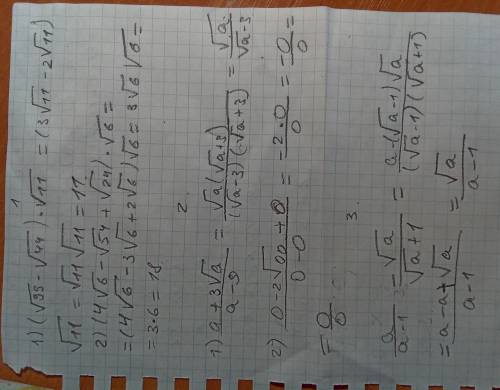 1
1) (√99 - √44) · √11 = (3√11 - 2√11)
√11 = √11 √11 = 11
2) (4√6 - √54 + √24) · √6 =
= (4√6 - 3√6 + 2√6) √6 = 3√6 √6 =
= 3·6 = 18
2.
1) (a + 3√a)/(a - 9) = (√a(√a + 3))/((√a - 3)(√a + 3)) = √a/(√a - 3)
2) (0 - 2√00 + 0)/(0 - 0) = (-2·0)/0 = -0/0 =
= 0/0
3.
a/(a - 1) - √a/(√a + 1) = (a - (√a - 1)√a)/((√a - 1)(√a + 1))
= (a - a + √a)/(a - 1) = √a/(a - 1)